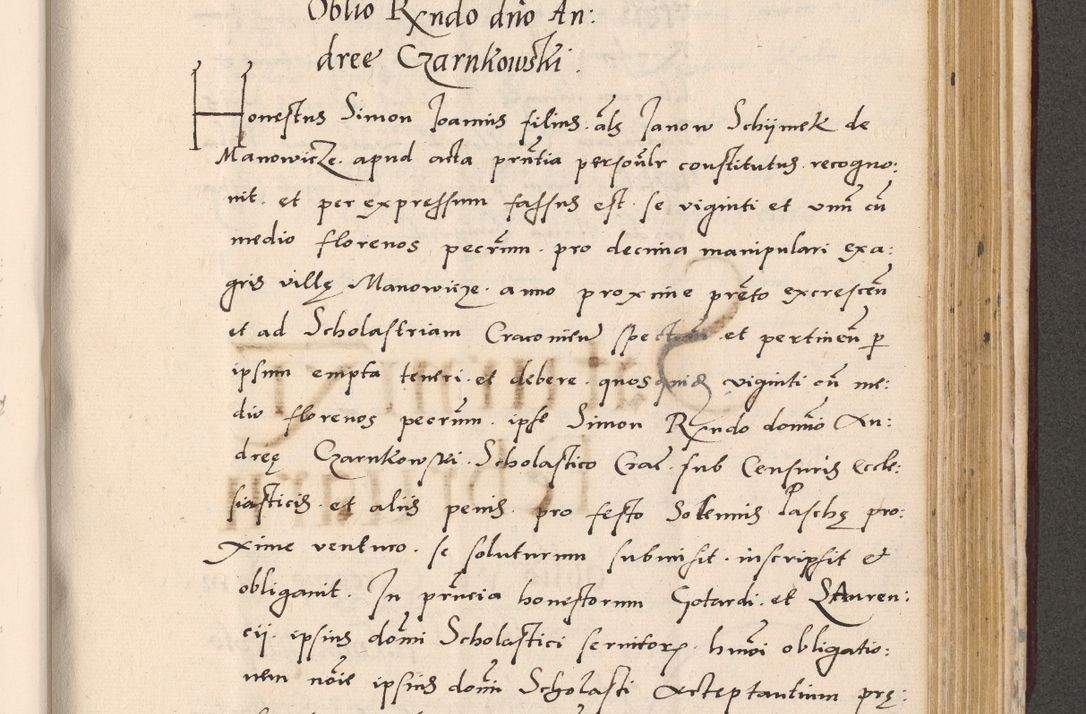 Oblio Rxndo dno An:
dree Czarnkowski.
Honestus Simon Joannis filius als Janow Schijmek de
Manowicze. apud acta prntia personlr constitutus. recogno:
uit. et per expressum fassus est. se viginti et vnu cu
medio florenos pecrum. pro decima manipulari ex a:
gris villę Manowicze. anno proxime prēto excrescen
et ad Scholastriam Cracouien spectan. et pertinen p
ipsum empta teneri. et debere. quosquid viginti cu me:
dio florenos pecrum. ipse Simon Rxndo domino An:
dręę Czarnkowski. Scholastico Crac. sub Censuris Eccle:
siasticis. et aliis penis. pro festo Solennis Paschę pro:
xime venturo. se soluturum submisit. inscripsit et
obligauit. In prncia honestorum Gotardi. et Lauren:
cii. ipsius domi Scholastici seruitorx. hmoi obligatio:
nem noie ipsius domi Scholasti acceptantium prę: